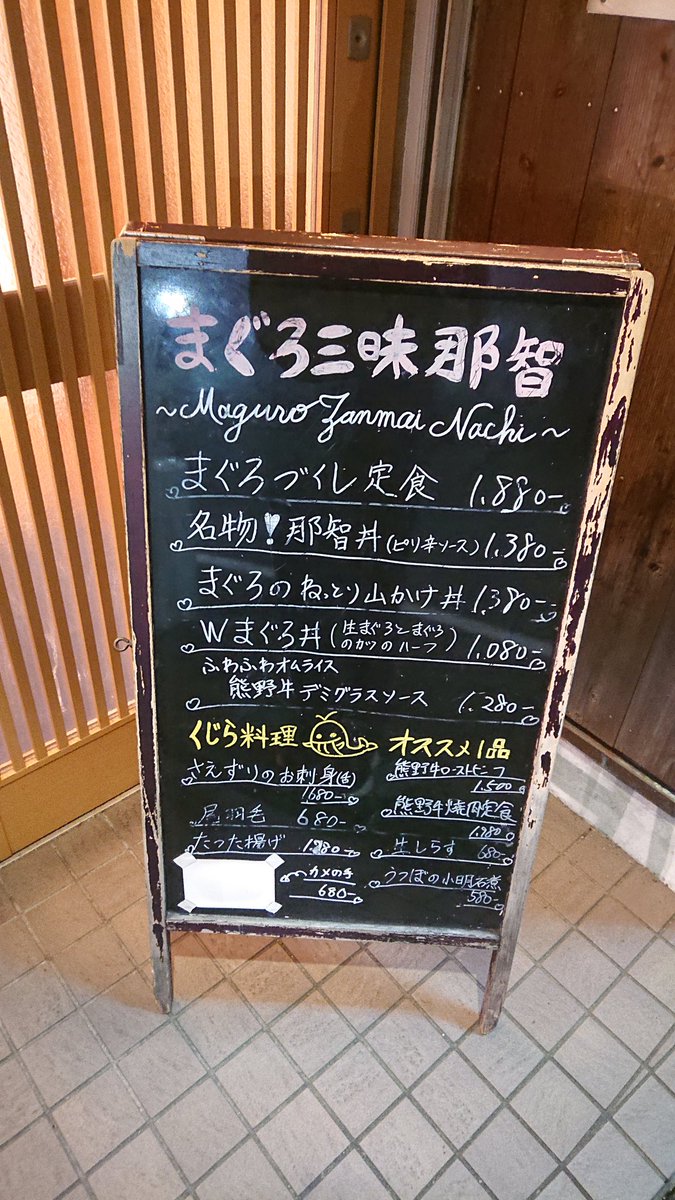 まぐろ三昧那智
~Maguro Zanmai Nachi~
まぐろづくし定食 1.880-
名物!那智丼(ピリ辛ソース) 1.380-
まぐろのねっとり山かけ丼 1.380-
Wまぐろ丼(生まぐろとまぐろのカツのハーフ) 1.080-
ふわふわオムライス
熊野牛デミグラスソース 1.280-
くじら料理
さえずりのお刺身(舌)
1680-
尾羽毛 680-
たつた揚げ 1.280-
カメの手
680-
オススメ1品
熊野牛ローストビーフ
1.500
熊野牛焼肉定食
生しらす 680-
うつぼの小明石煮
580-